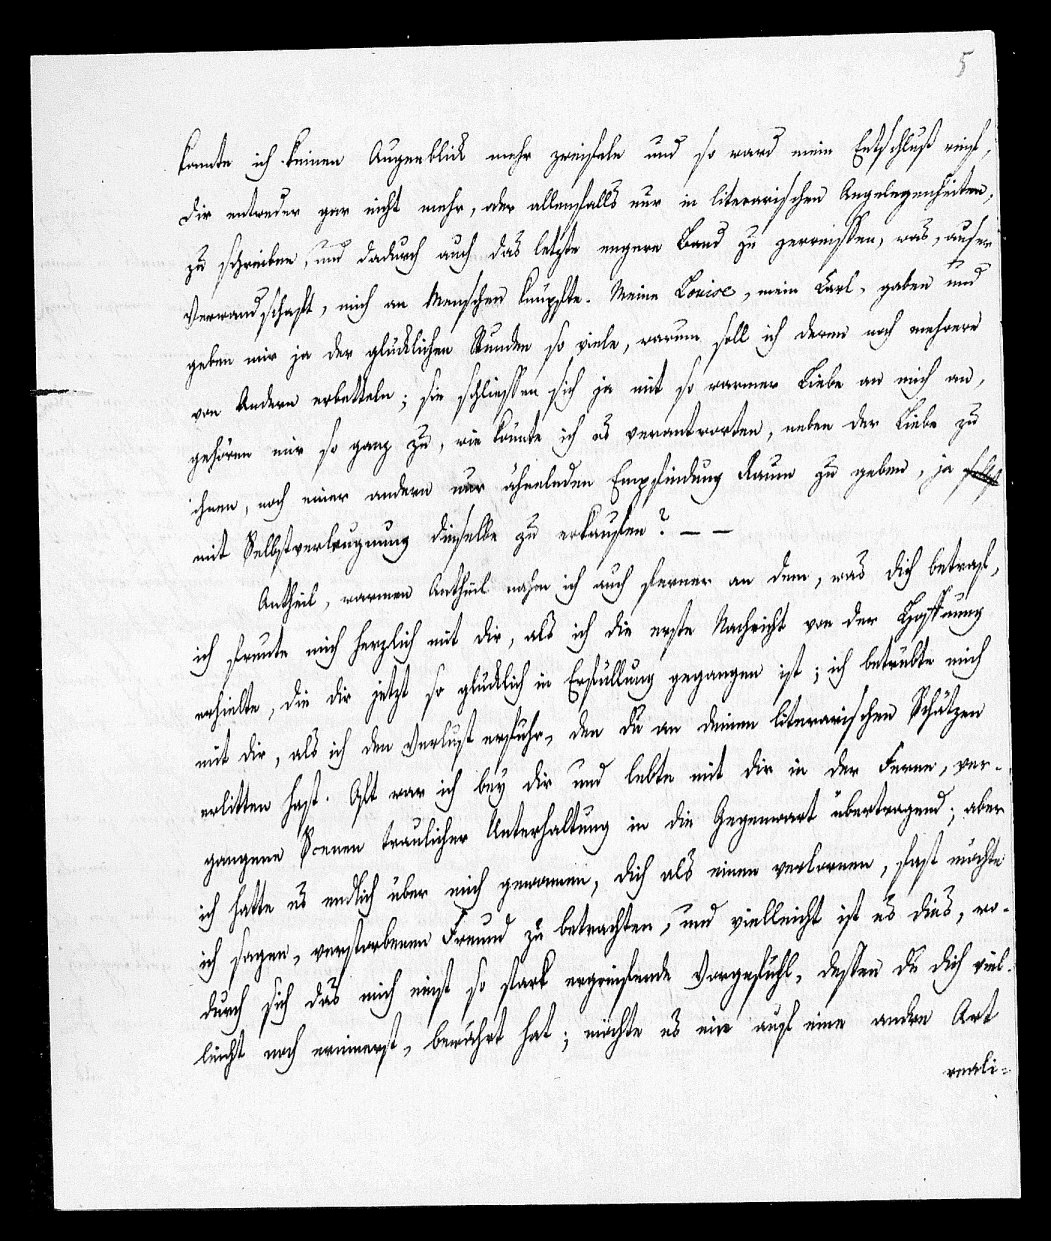 5
konnte ich keinen Augenblick mehr zweifeln und so ward mein Entschluß reif,
Dir entweder gar nicht mehr, oder allenfalls nur in literarischen Angelegenheiten,
zu schreiben, und dadurch auch das letzte engere Band zu zerreissen, was, ausser
Verwandschaft, mich an Menschen knüpfte. Meine Louise, mein Carl, gaben und
geben mir ja der glücklichen Stunden so viele, warum soll ich deren noch mehrere
von Andern erbetteln; sie schliessen sich ja mit so warmer Liebe an mich an,
gehören mir so ganz zu, wie könnte ich es verantworten, neben der Liebe zu
ihnen, noch einer andern nur ähnelnden Empfindung Raum zu geben, ja
mit Selbstverleugnung dieselbe zu erkaufen? — —
Antheil, warmen Antheil nahm ich auch ferner an dem, was Dich betraf,
ich freute mich herzlich mit Dir, als ich die erste Nachricht von der Hoffnung
erhielte, die Dir jetzt so glücklich in Erfüllung gegangen ist; ich betrübte mich
mit Dir, als ich den Verlust erfuhr, den Du an Deinen literarischen Schätzen
erlitten hast. Oft war ich bey Dir und lebte mit Dir in der Ferne, ver-
gangene Scenen traulicher Unterhaltung in die Gegenwart übertragend; aber
ich hatte es endlich über mich gewonnen, Dich als einen verlornen, fast möchte
ich sagen, verstorbenen Freund zu betrachten, und vielleicht ist es dies, wo-
durch sich das mich einst so stark ergreifende Vorgefühl, dessen Du Dich viel-
leicht noch erinnerst, bewährt hat; möchte es nie auf eine andre Art
reali-